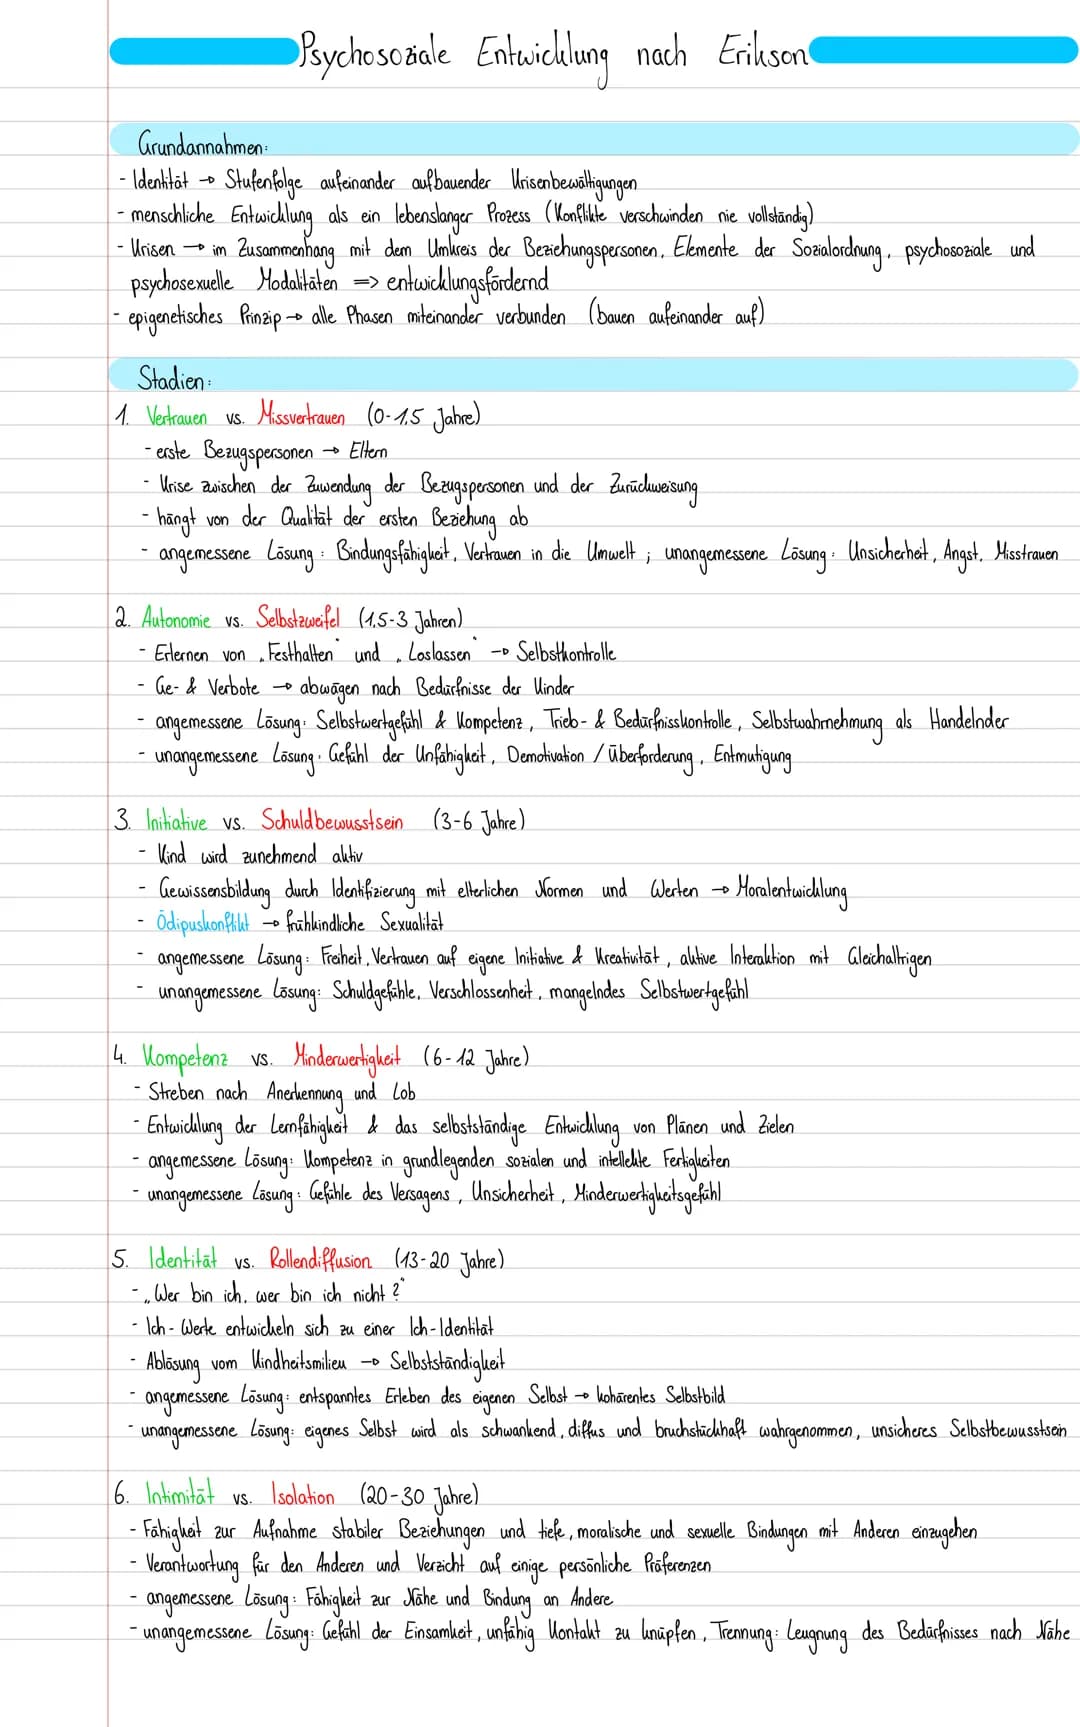 Psychosoziale Entwicklung nach Erikson
Grundannahmen:
- Identität → Stufenfolge aufeinander aufbauender Krisenbewältigungen
- menschliche Entwicklung als ein lebenslanger Prozess (Konflikte verschwinden nie vollständig)
- Krisen → im Zusammenhang mit dem Umkreis der Beziehungspersonen, Elemente der Sozialordnung, psychosoziale und
psychosexuelle Modalitäten => entwicklungsfördernd
- epigenetisches Prinzip → alle Phasen miteinander verbunden (bauen aufeinander auf)
Stadien:
1. Vertrauen vs. Missvertrauen (0-1,5 Jahre)
- erste Bezugspersonen → Eltern
- Krise zwischen der Zuwendung der Bezugspersonen und der Zurückweisung
- hängt von der Qualität der ersten Beziehung ab
- angemessene Lösung: Bindungsfähigkeit, Vertrauen in die Umwelt; unangemessene Lösung: Unsicherheit, Angst, Misstrauen
2. Autonomie vs. Selbstzweifel (1,5-3 Jahren)
- Erlernen von „Festhalten" und „Loslassen" → Selbstkontrolle
- Ge- & Verbote → abwägen nach Bedürfnisse der Kinder
- angemessene Lösung: Selbstwertgefühl & Kompetenz, Trieb- & Bedürfnisskontrolle, Selbstwahrnehmung als Handelnder
- unangemessene Lösung: Gefühl der Unfähigkeit, Demotivation / überforderung, Entmutigung
3. Initiative vs. Schuldbewusstsein (3-6 Jahre)
- Kind wird zunehmend aktiv
- Gewissensbildung durch Identifizierung mit elterlichen Normen und Werten → Moralentwicklung
- Ödipuskonflikt → frühkindliche Sexualität
- angemessene Lösung: Freiheit, Vertrauen auf eigene Initiative & Kreativität, aktive Interaktion mit Gleichaltrigen
- unangemessene Lösung: Schuldgefühle, Verschlossenheit, mangelndes Selbstwertgefühl
4. Kompetenz vs. Minderwertigkeit (6-12 Jahre)
- Streben nach Anerkennung und Lob
- Entwicklung der Lernfähigkeit & das selbstständige Entwicklung von Plänen und Zielen
- angemessene Lösung: Kompetenz in grundlegenden sozialen und intellekte Fertigkeiten
- unangemessene Lösung: Gefühle des Versagens, Unsicherheit, Minderwertigkeitsgefühl
5. Identität vs. Rollendiffusion (13-20 Jahre)
- „Wer bin ich, wer bin ich nicht?"
- Ich-Werte entwickeln sich zu einer Ich-Identität
- Ablösung vom Kindheitsmilieu → Selbstständigkeit
- angemessene Lösung: entspanntes Erleben des eigenen Selbst → kohärentes Selbstbild
- unangemessene Lösung: eigenes Selbst wird als schwankend, diffus und bruchstückhaft wahrgenommen, unsicheres Selbstbewusstsein
6. Intimität vs. Isolation (20-30 Jahre)
- Fähigkeit zur Aufnahme stabiler Beziehungen und tiefe, moralische und sexuelle Bindungen mit Anderen einzugehen
- Verantwortung für den Anderen und Verzicht auf einige persönliche Präferenzen
- angemessene Lösung: Fähigkeit zur Nähe und Bindung an Andere
- unangemessene Lösung: Gefühl der Einsamkeit, unfähig Kontakt zu knüpfen, Trennung: Leugnung des Bedürfnisses nach Nähe